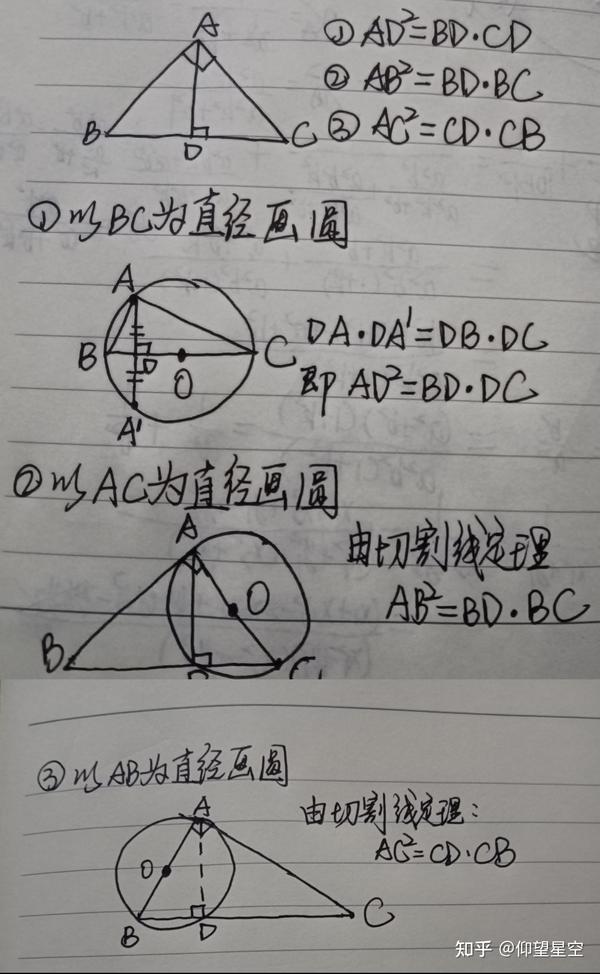 A
B
D
C
① AD²=BD·CD
② AB²=BD·BC
③ AC²=CD·CB
① 以BC为直径画圆
A
B
D
O
C
A'
DA·DA'=DB·DC
即 AD²=BD·DC
② 以AC为直径画圆
A
O
B
由切割线定理
AB²=BD·BC
③ 以AB为直径画圆
A
O
B
D
C
由切割线定理:
AC²=CD·CB
知乎 @仰望星空